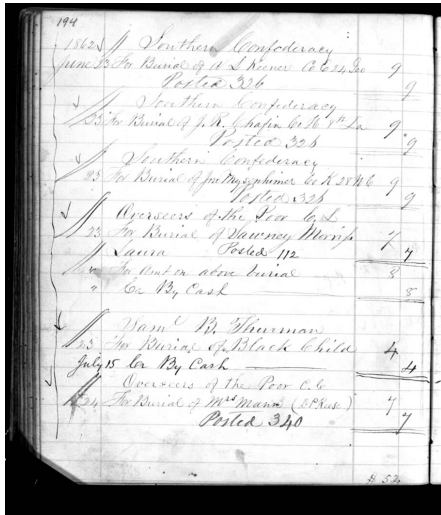 194
1862 Southern Confederacy
June 23 For Burial of A L Keener Co E 24 Geo 9
Posted 326 9
Southern Confederacy
23 For Burial of J. R. Chapin Co K 8th La 9
Posted 326 9
Southern Confederacy
23 For Burial of Jno Co K 28 N C 9
Posted 326 9
Overseers of the Poor C. L
23 For Burial of Morris 7
Posted 112 7
Laura
For on above burial 8
" Cr By Cash 8
Saml B. Thurman
23 For Burial of Black Child 4
July 15 Cr By Cash 4
Overseers of the Poor C. C
24 For Burial of Mrs Mann 7
Posted 340 7